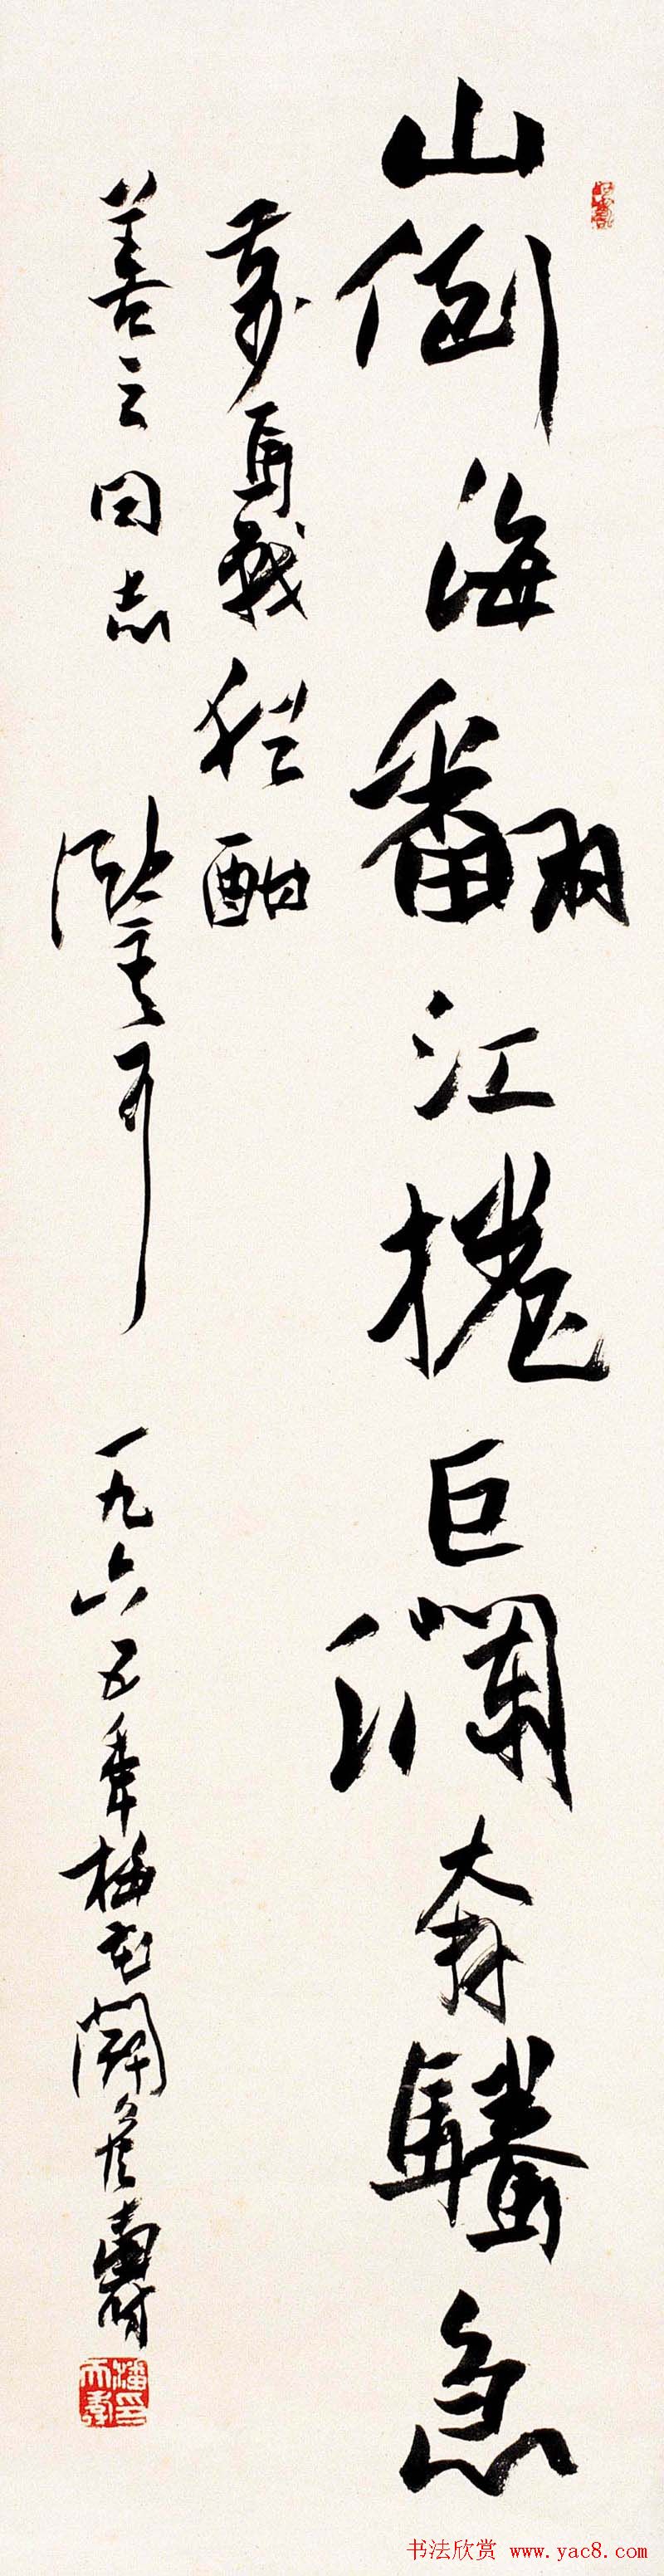 山倒海翻江捲巨瀾奔騰急
萬馬戰猶酣
善之同志 一九六五年梅花開候壽
潘天壽印
书法欣赏 www.yac8.com